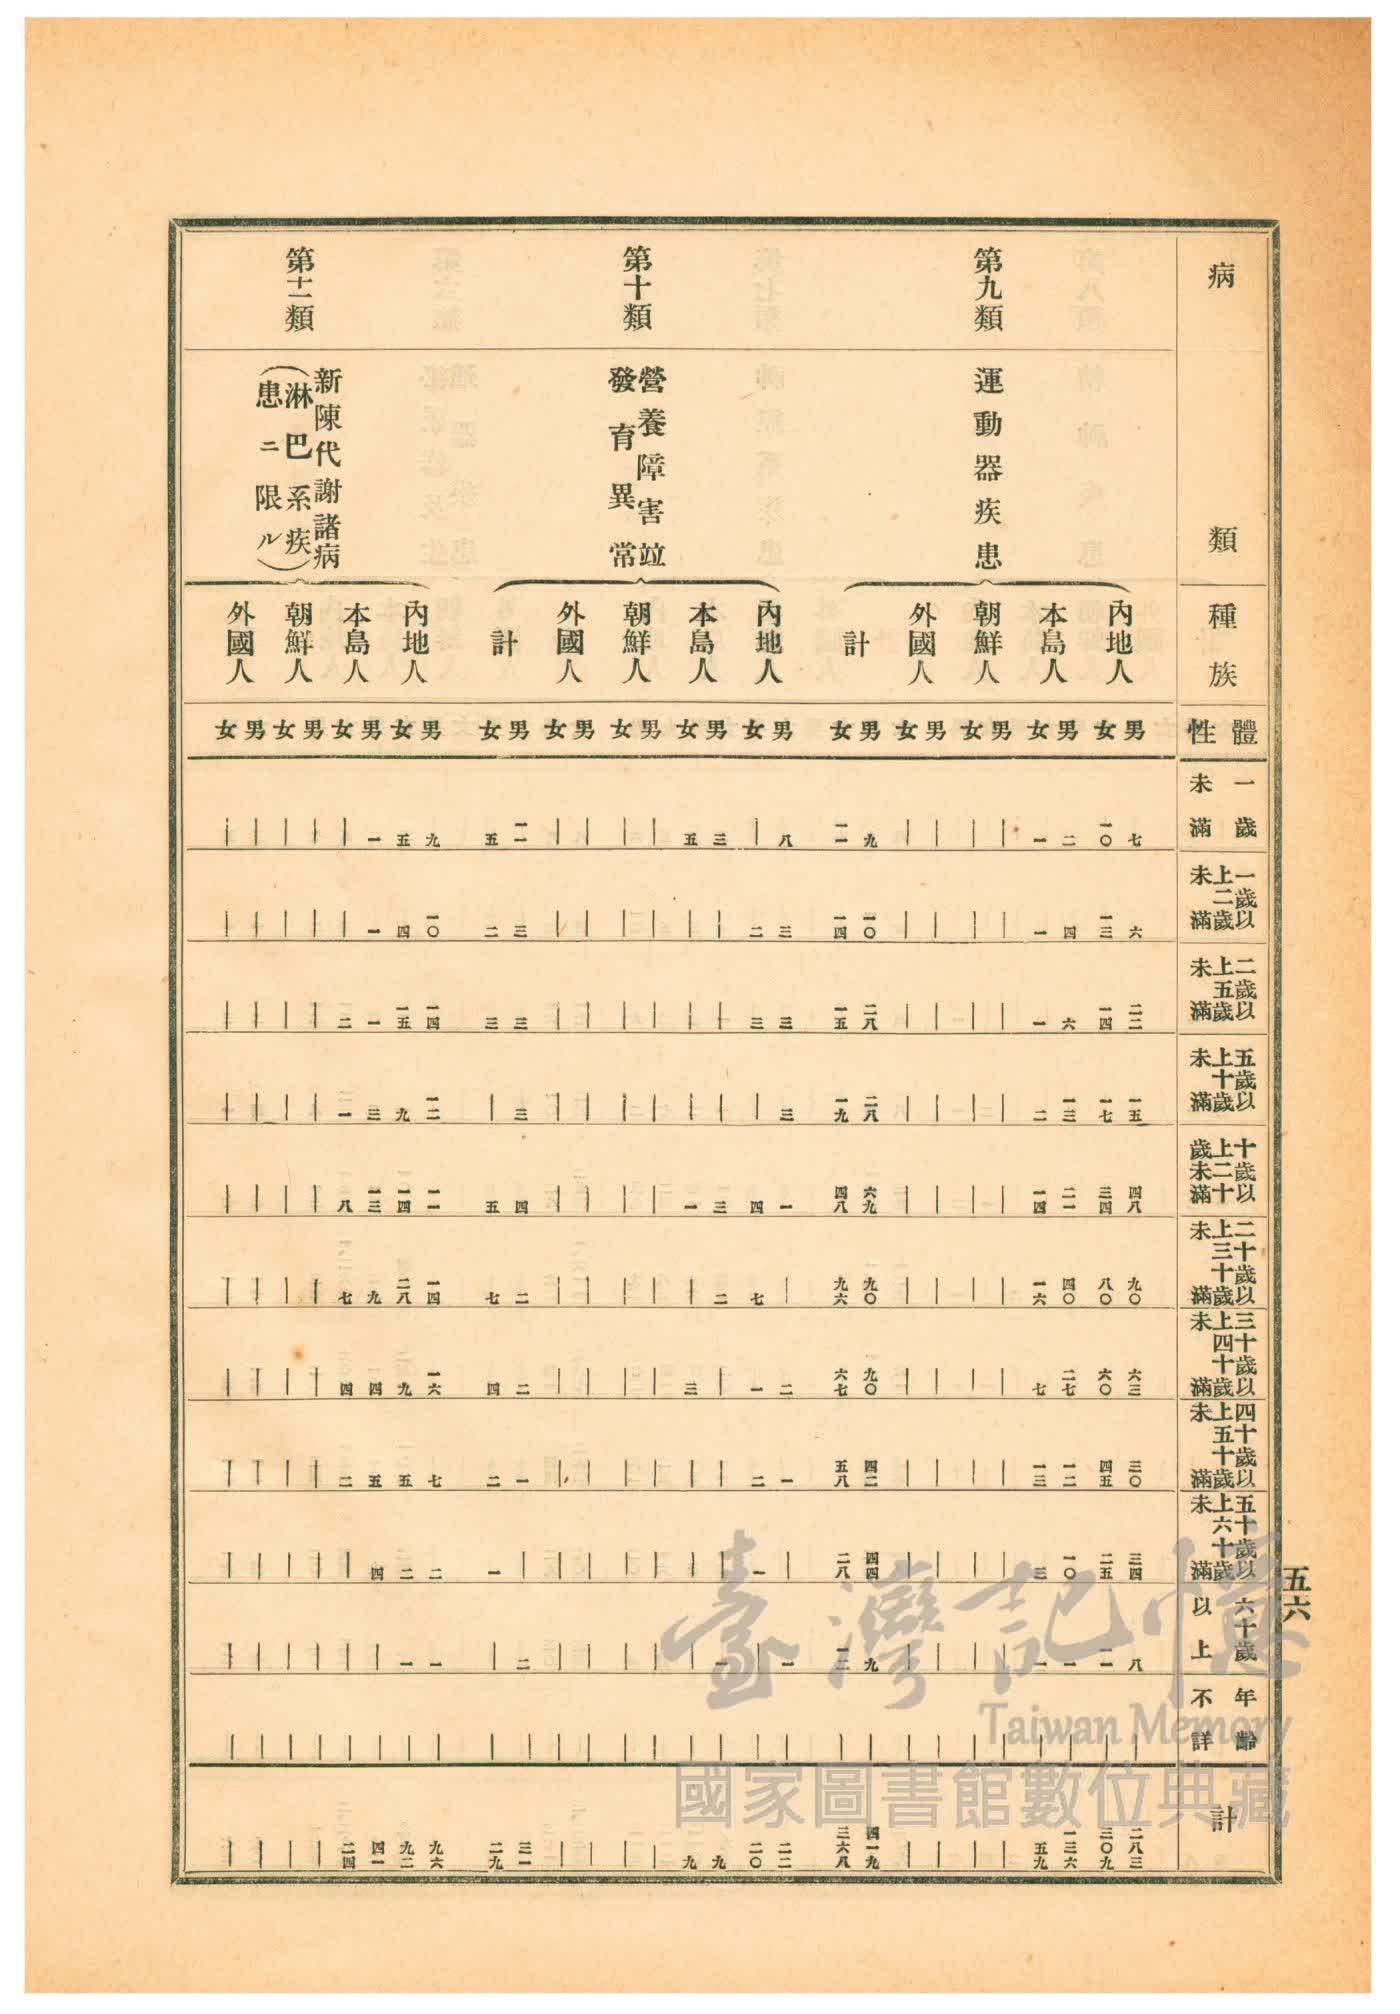 五六
病類
種族
體性
一歲未滿
一歲以上二歲未滿
二歲以上五歲未滿
五歲以上十歲未滿
十歲以上二十歲未滿
二十歲以上三十歲未滿
三十歲以上四十歲未滿
四十歲以上五十歲未滿
五十歲以上六十歲未滿
六十歲以上
年齡不詳
計
第九類
運動器疾患
內地人
男 七 六 二二 一五 四八 五〇 六三 三〇 三四 八 ｜ 二八三
女 一〇 一三 一四 一七 三四 八〇 六〇 四五 二五 一一 ｜ 三〇九
本島人
男 二 四 六 一三 二一 四〇 二七 一二 一〇 一 ｜ 一三六
女 一 一 一 二 一四 一六 七 一三 三 一 ｜ 五九
朝鮮人
男 ｜ ｜ ｜ ｜ ｜ ｜ ｜ ｜ ｜ ｜ ｜ ｜
女 ｜ ｜ ｜ ｜ ｜ ｜ ｜ ｜ ｜ ｜ ｜ ｜
外國人
男 ｜ ｜ ｜ ｜ ｜ ｜ ｜ ｜ ｜ ｜ ｜ ｜
女 ｜ ｜ ｜ ｜ ｜ ｜ ｜ ｜ ｜ ｜ ｜ ｜
計
男 九 一〇 二八 二八 六九 九〇 九〇 四二 四四 九 ｜ 四一九
女 一一 一四 一五 一九 四八 九六 六七 五八 二八 一二 ｜ 三六八
第十類
營養障害竝
發育異常
內地人
男 八 三 三 三 一 ｜ 二 一 ｜ 一 ｜ 二二
女 ｜ 二 三 ｜ 四 七 一 二 一 ｜ ｜ 二〇
本島人
男 三 ｜ ｜ ｜ 三 二 ｜ ｜ ｜ 一 ｜ 九
女 五 ｜ ｜ ｜ 一 ｜ 三 ｜ ｜ ｜ ｜ 九
朝鮮人
男 ｜ ｜ ｜ ｜ ｜ ｜ ｜ ｜ ｜ ｜ ｜ ｜
女 ｜ ｜ ｜ ｜ ｜ ｜ ｜ ｜ ｜ ｜ ｜ ｜
外國人
男 ｜ ｜ ｜ ｜ ｜ ｜ ｜ ｜ ｜ ｜ ｜ ｜
女 ｜ ｜ ｜ ｜ ｜ ｜ ｜ ｜ ｜ ｜ ｜ ｜
計
男 一一 三 三 三 四 二 二 一 ｜ 二 ｜ 三一
女 五 二 三 ｜ 五 七 四 二 一 ｜ ｜ 二九
第十一類
新陳代謝諸病
(淋巴系疾
患ニ限ル)
內地人
男 九 一〇 一四 一二 一一 一四 一六 七 二 一 ｜ 九六
女 五 四 一五 九 一四 二八 九 五 二 一 ｜ 九二
本島人
男 一 一 一 三 一三 九 四 五 四 ｜ ｜ 四一
女 ｜ ｜ 二 一 八 七 四 二 ｜ ｜ ｜ 二四
朝鮮人
男 ｜ ｜ ｜ ｜ ｜ ｜ ｜ ｜ ｜ ｜ ｜ ｜
女 ｜ ｜ ｜ ｜ ｜ ｜ ｜ ｜ ｜ ｜ ｜ ｜
外國人
男 ｜ ｜ ｜ ｜ ｜ ｜ ｜ ｜ ｜ ｜ ｜ ｜
女 ｜ ｜ ｜ ｜ ｜ ｜ ｜ ｜ ｜ ｜ ｜ ｜
臺灣記憶
Taiwan Memory
國家圖書館數位典藏